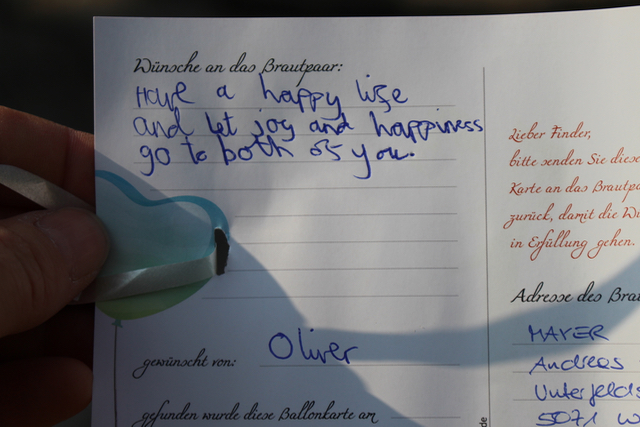 Wünsche an das Brautpaar:
Have a happy life
and let joy and happiness
go to both of you.
gewünscht von:
Oliver
gefunden wurde diese Ballonkarte am
Lieber Finder,
bitte senden Sie diese
Karte an das Brautpa
zurück, damit die Wü
in Erfüllung gehen.
Adresse des Brau
MAYER
Andreas
Unterfelds
5071 W
de